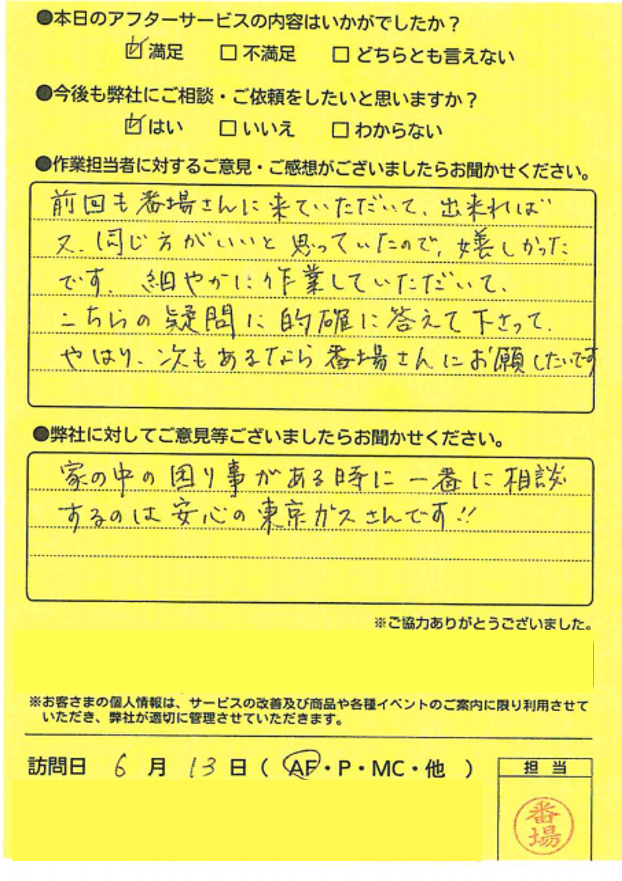 ●本日のアフターサービスの内容はいかがでしたか？
☑満足 □不満足 □どちらとも言えない
●今後も弊社にご相談・ご依頼をしたいと思いますか？
☑はい □いいえ □わからない
●作業担当者に対するご意見・ご感想がございましたらお聞かせください。
前回も番場さんに来ていただいて、出来れば
又、同じ方がいいと思っていたので、嬉しかった
です。細やかに作業していただいて、
こちらの疑問に的確に答えて下さって、
やはり、次もあるなら番場さんにお願いしたいです
●弊社に対してご意見等ございましたらお聞かせください。
家の中の困り事がある時に一番に相談
するのは安心の東京ガスさんです!!
※ご協力ありがとうございました。
※お客さまの個人情報は、サービスの改善及び商品や各種イベントのご案内に限り利用させて
いただき、弊社が適切に管理させていただきます。
訪問日 6 月 13 日（ AF・P・MC・他 ）
担 当
番場